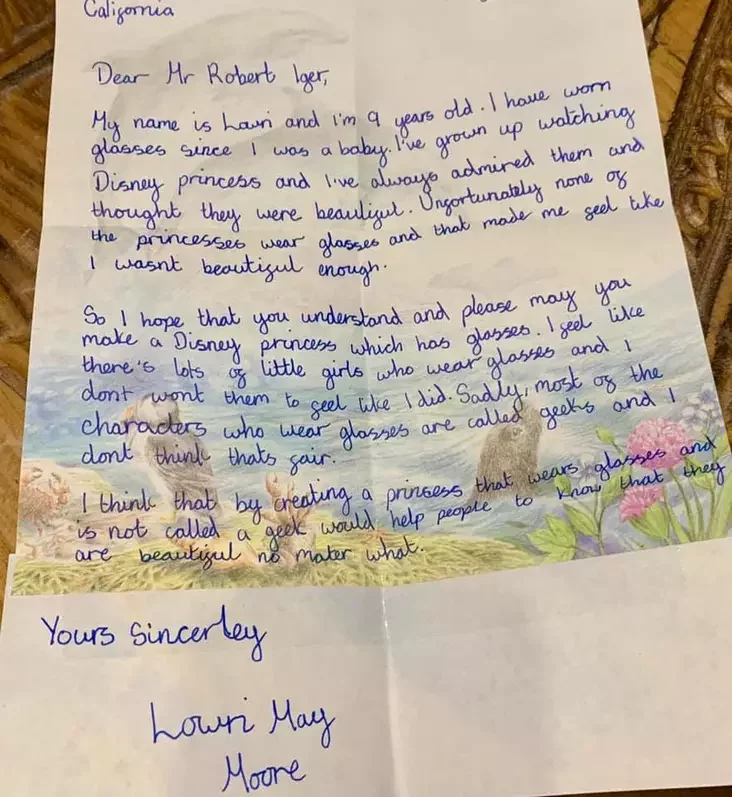 California
Dear Mr Robert Iger,
My name is Lowri and I'm 9 years old. I have worn
glasses since I was a baby. I've grown up watching
Disney princess and I've always admired them and
thought they were beautiful. Unfortunately none of
the princesses wear glasses and that made me feel like
I wasnt beautiful enough.
So I hope that you understand and please may you
make a Disney princess which has glasses. I feel like
there's lots of little girls who wear glasses and I
dont wont them to feel like I did. Sadly, most of the
characters who wear glasses are called geeks and I
dont think thats fair.
I think that by creating a princess that wears glasses and
is not called a geek would help people to know that they
are beautiful no mater what.
Yours Sincerley
Lowri May
Moore